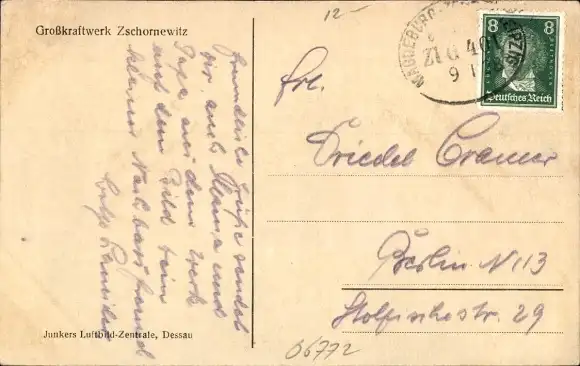 12-
Großkraftwerk Zschornewitz
freundliche Grüße sendet
Dir, auch Mama und
Papa, aus dem Werk
auf dem Bild
kleiner
Junkers Luftbild-Zentrale, Dessau
MAGDEBURG
ZUG 401
9
8 8
Deutsches Reich
Frl.
Friedel Cramer
Berlin N 113
Stolpischestr. 29
06772